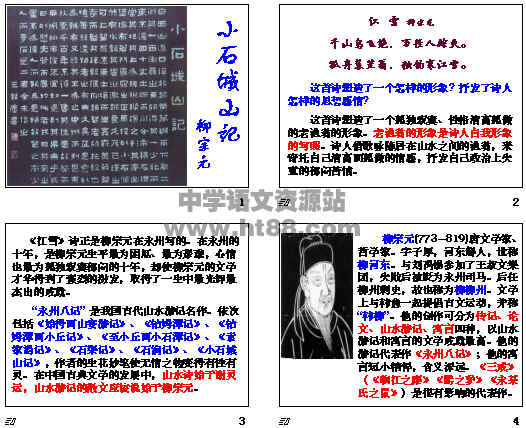 小石城山記
小石城山记
柳宗元
1
江 雪 柳宗元
千山鸟飞绝，万径人踪灭。
孤舟蓑笠翁，独钓寒江雪。
这首诗塑造了一个怎样的形象？抒发了诗人
怎样的思想感情？
这首诗塑造了一个孤独寂寞、性格清高孤傲
的老渔翁的形象。老渔翁的形象是诗人自我形象
的写照。诗人借歌咏隐居在山水之间的渔翁，来
寄托自己清高而孤傲的情感，抒发自己政治上失
意的郁闷苦恼。
2
中学语文资源站
www.ht88.com
《江雪》诗正是柳宗元在永州写的。在永州的
十年，是柳宗元生平最为困厄、最为艰难，心情
也最为孤独寂寞郁闷的十年，却使柳宗元的文学
才华得到了充分的激发，取得了一生中最光辉最
杰出的成就。
“永州八记”是我国古代山水游记名作。依次
包括《始得西山宴游记》、《钴鉧潭记》、《钴
鉧潭西小丘记》、《至小丘西小石潭记》、《袁
家渴记》、《石渠记》、《石涧记》、《小石城
山记》，作者的生花妙笔使无情之物变得有性有
灵。在中国古典文学的发展中，山水诗始于谢灵
运，山水游记的散文应该说始于柳宗元。
3
柳宗元(773—819)唐文学家、
哲学家。字子厚，河东解人，世称
柳河东。与刘禹锡参加了王叔文集
团，失败后被贬为永州司马。后任
柳州刺史，故也称为柳柳州。文学
上与韩愈一起提倡古文运动，并称
“韩柳”。他的创作可分为传记、论
文、山水游记、寓言四种，以山水
游记和寓言的文学成就最高。他的
游记代表作《永州八记》；他的寓
言短小精悍，含义深远。《三戒》
（《临江之麋》《黔之驴》《永某
氏之鼠》）是很有影响的代表作。
4